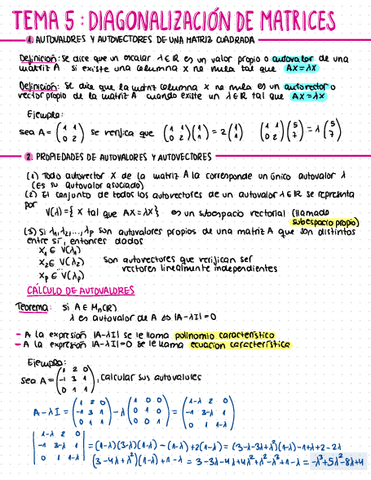 TEMA 5: DIAGONALIZACIÓN DE MATRICES
1. AUTOVALORES Y AUTOVECTORES DE UNA MATRIZ CUADRADA
Definición: se dice que un escalar λ∈ℝ es un valor propio o autovalor de una
matriz A si existe una columna X no nula tal que AX=λX
Definición: se dice que la matriz columna X no nula es un autovector o
vector propio de la matriz A cuando existe un λ∈ℝ tal que AX=λX
Ejemplo:
sea A = (1 1 / 0 2) se verifica que (1 1 / 0 2)(1 / 1) = 2(1 / 1) (1 1 / 0 2)(5 / 7) = λ(5 / 7)
2. PROPIEDADES DE AUTOVALORES Y AUTOVECTORES
(1) Todo autovector X de la matriz A la corresponde un único autovalor λ
(Es su autovalor asociado)
(2) El conjunto de todos los autovectores de un autovalor λ∈ℝ se representa
por
V(λ) = {X tal que AX=λX} es un subespacio vectorial (llamado
subespacio propio)
(3) Si λ₁, λ₂, ..., λp son autovalores propios de una matriz A que son distintos
entre sí, entonces dados
X₁ ∈ V(λ₁)
X₂ ∈ V(λ₂) Son autovectores que verifican ser
... vectores linealmente independientes
Xp ∈ V(λp)
CÁLCULO DE AUTOVALORES
Teorema: Si A ∈ Mn(ℝ)
λ es autovalor de A ⇔ |A-λI|=0
– A la expresión |A-λI| se le llama polinomio característico
– A la expresión |A-λI|=0 se le llama ecuación característica
Ejemplo:
sea A = (1 2 0 / -1 3 1 / 0 1 1), calcular sus autovalores
A-λI = (1 2 0 / -1 3 1 / 0 1 1) - λ(1 0 0 / 0 1 0 / 0 0 1) = (1-λ 2 0 / -1 3-λ 1 / 0 1 1-λ)
|1-λ 2 0 / -1 3-λ 1 / 0 1 1-λ| = (1-λ)(3-λ)(1-λ) - (1-λ) + 2(1-λ) = (3-λ-3λ+λ²)(1-λ) - 1+λ+2-2λ
(3-4λ+λ²)(1-λ)+1-λ = 3-3λ-4λ+4λ²+λ²-λ³+1-λ = -λ³+5λ²-8λ+4